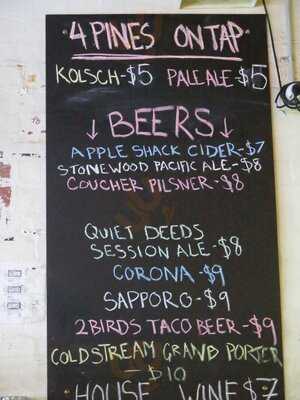 4 PINES ON TAP
KOLSCH-$5 PALE ALE-$5
↓ BEERS ↓
APPLE SHACK CIDER-$7
STONEWOOD PACIFIC ALE-$8
COUCHER PILSNER-$8
QUIET DEEDS
SESSION ALE-$8
CORONA-$9
SAPPORO-$9
2BIRDS TACO BEER-$9
COLDSTREAM GRAND PORTER
-$10
HOUSE WINE $7